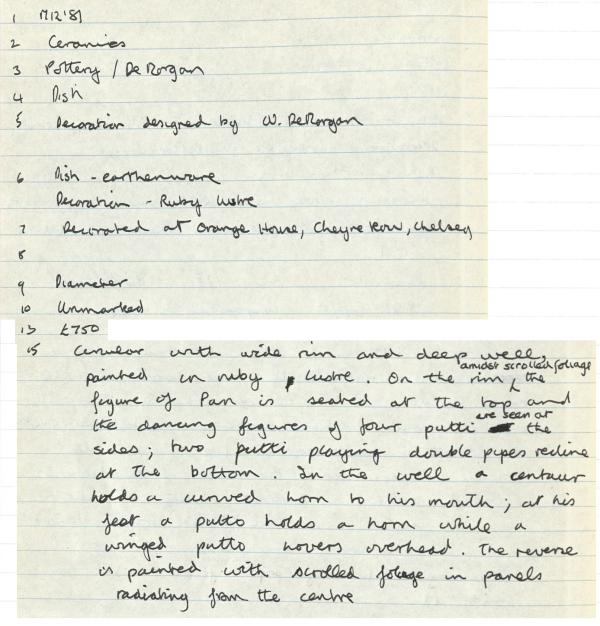 1 M12'81
2 Ceramics
3 Pottery / De Morgan
4 Dish
5 Decoration designed by W. De Morgan
6 Dish - earthenware
Decoration - Ruby lustre
7 Decorated at Orange House, Cheyne Row, Chelsea
8
9 Diameter
10 Unmarked
13 £750
15 Circular with wide rim and deep well,
painted in ruby lustre. On the rim amidst scrolled foliage the
figure of Pan is seated at the top and
the dancing figures of four putti are seen at the
sides; two putti playing double pipes recline
at the bottom. In the well a centaur
holds a curved horn to his mouth; at his
feet a putto holds a horn while a
winged putto hovers overhead. The reverse
is painted with scrolled foliage in panels
radiating from the centre